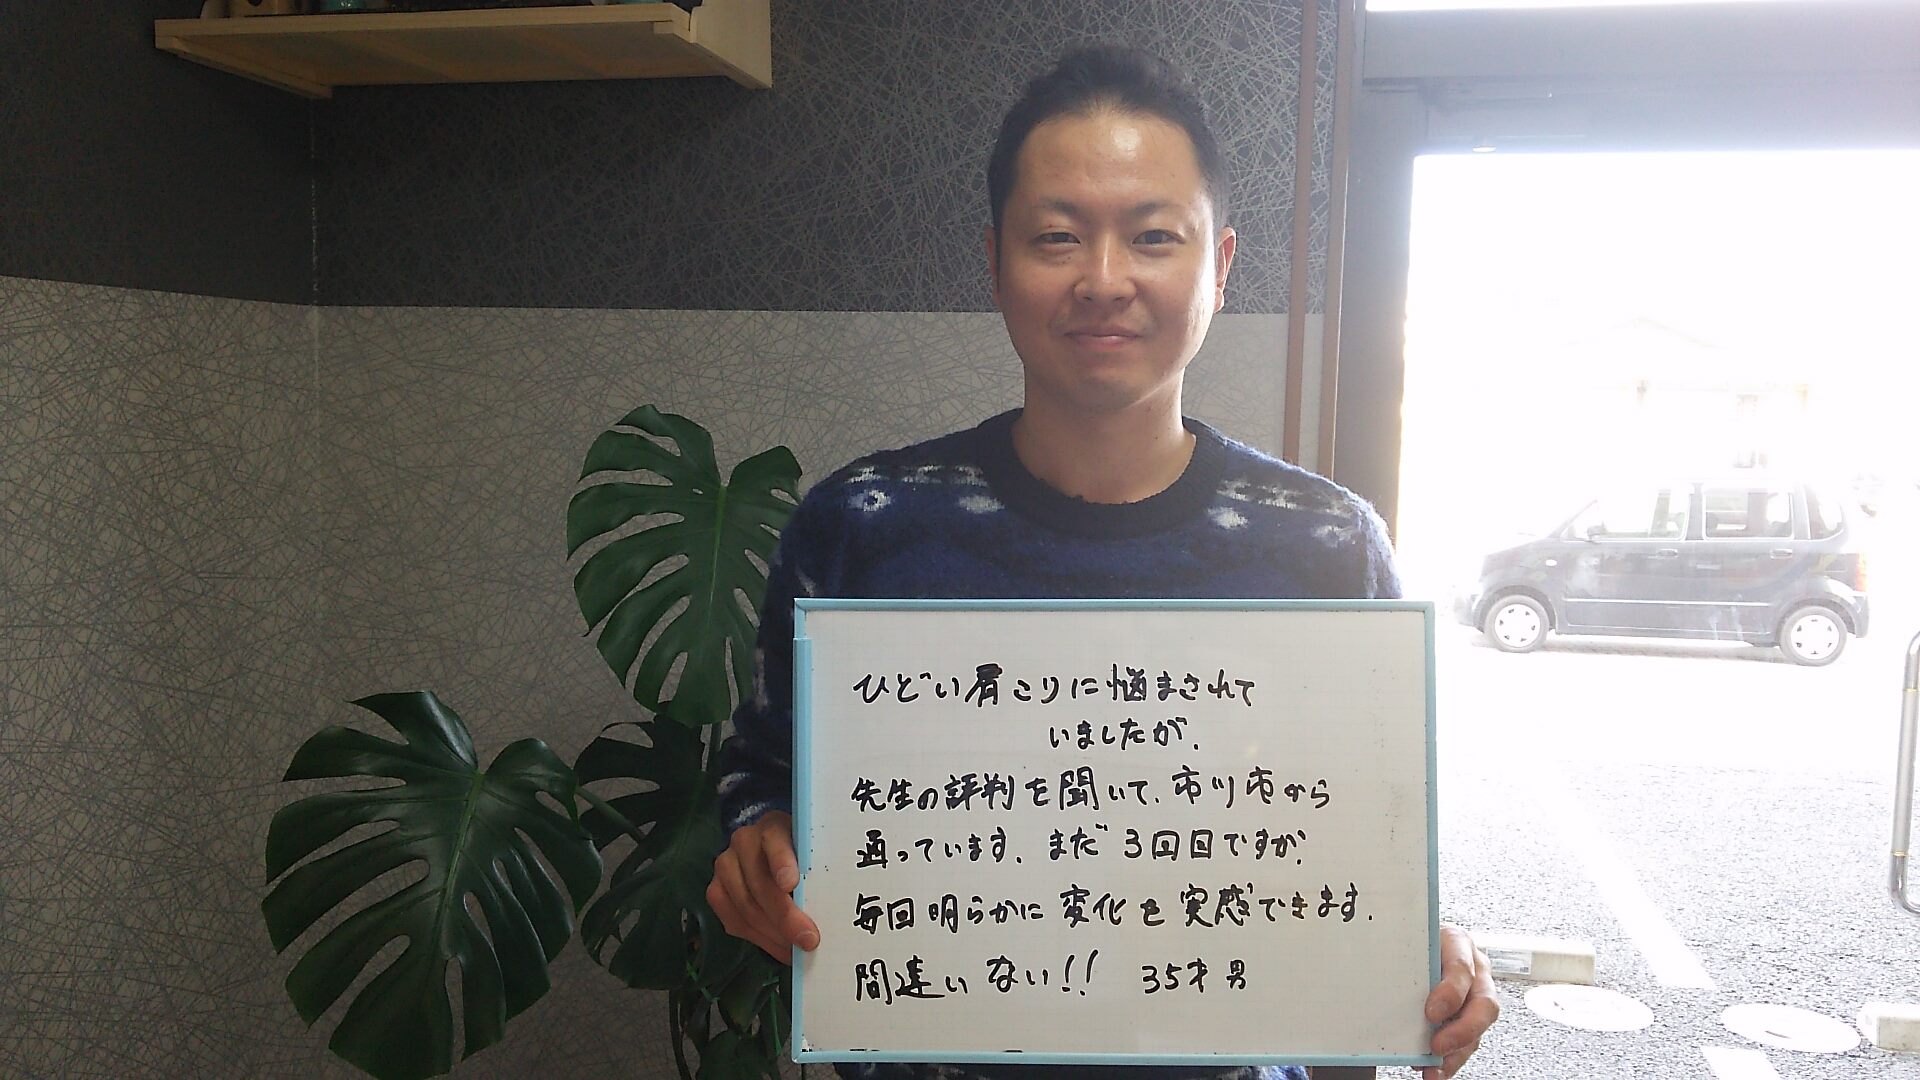 ひどい肩こりに悩まされて
いましたが、
先生の評判を聞いて、市川市から
通っています。まだ3回目ですが、
毎回明らかに変化を実感できます。
間違いない!! 35才 男